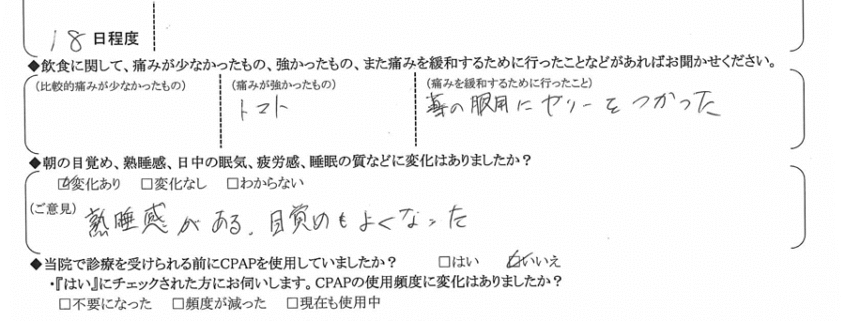 18 日程度
◆飲食に関して、痛みが少なかったもの、強かったもの、また痛みを緩和するために行ったことなどがあればお聞かせください。
(比較的痛みが少なかったもの) (痛みが強かったもの) (痛みを緩和するために行ったこと)
トマト 薬の服用にゼリーをつかった
◆朝の目覚め、熟睡感、日中の眠気、疲労感、睡眠の質などに変化はありましたか？
☑変化あり □変化なし □わからない
(ご意見) 熟睡感がある。目覚のもよくなった
◆当院で診療を受けられる前にCPAPを使用していましたか？ □はい ☑いいえ
・『はい』にチェックされた方にお伺いします。CPAPの使用頻度に変化はありましたか？
□不要になった □頻度が減った □現在も使用中